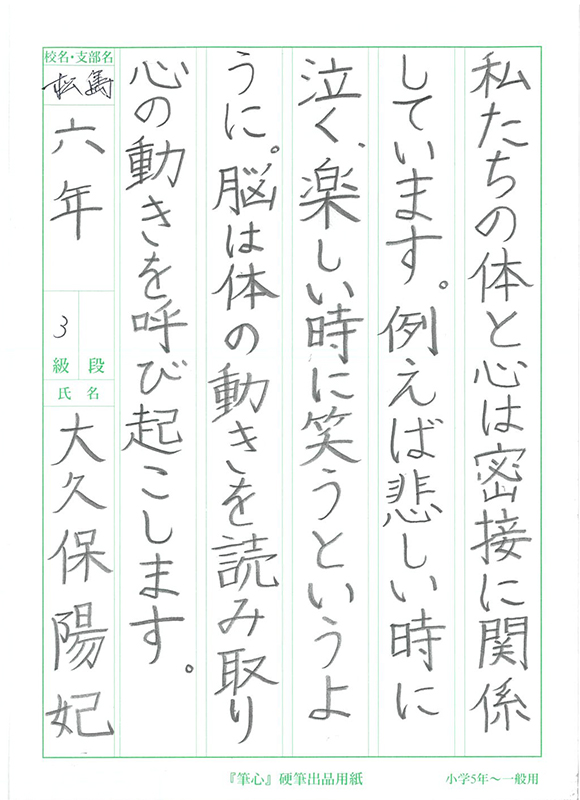 私たちの体と心は密接に関係
しています。例えば悲しい時に
泣く、楽しい時に笑うというよ
うに。脳は体の動きを読み取り
心の動きを呼び起こします。
校名・支部名
松島
六年
3
級 段
氏名
大久保陽妃
『筆心』硬筆出品用紙
小学5年～一般用